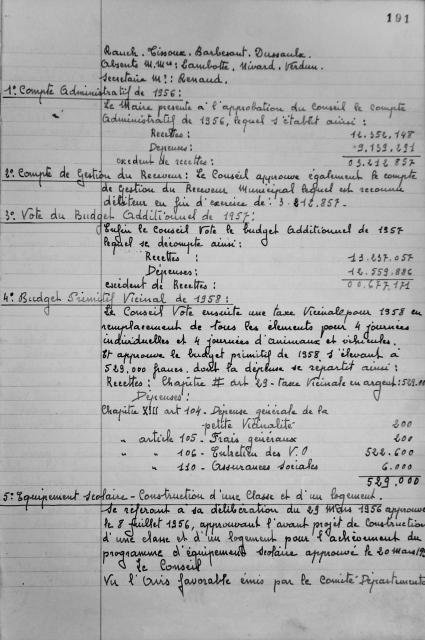 191
Rauch. Cissoux. Barbesant. Dussaulx.
Absents M.Mrs: Lambotte. Nivard. Verdun.
Secrétaire Mr: Renaud.
1º Compte Administratif de 1956:
Le Maire présente à l'approbation du Conseil le compte
Administratif de 1956, lequel s'établit ainsi:
Recettes: 12.352.148
Dépenses: 9.139.291
excédent de recettes: 03.212.857
2º Compte de Gestion du Receveur: Le Conseil approuve également le compte
de Gestion du Receveur Municipal lequel est reconnu
débiteur en fin d'exercice de: 3.212.857-
3º Vote du Budget Additionnel de 1957:
Enfin le Conseil Vote le budget Additionnel de 1957
lequel se décompte ainsi:
Recettes: 13.237.057
Dépenses: 12.559.886
excédent de Recettes: 00.677.171
4º Budget Primitif Vicinal de 1958:
Le Conseil Vote ensuite une taxe Vicinale pour 1958 en
remplacement de tous les éléments pour 4 journées
individuelles et 4 journées d'animaux et véhicules.
Et approuve le budget primitif de 1958 s'élevant à
529.000 francs dont la dépense se répartit ainsi:
Recettes: Chapitre II art 29 - taxe Vicinale en argent: 529.00
Dépenses:
Chapitre XIII art 104- Dépense générale de la
petite Vicinalité 200
" article 105- Frais généraux 200
" " 106- Entretien des V.O 522.600
" " 110- Assurances sociales 6.000
529.000
5º Equipement scolaire - Construction d'une Classe et d'un logement.
Se référant à sa délibération du 29 Mars 1956 approuvé
le 8 Juillet 1956, approuvant l'avant projet de Construction
d'une classe et d'un logement pour l'achèvement du
programme d'équipement scolaire approuvé le 20 Mars
Le Conseil
Vu l'Avis favorable émis par le Comité Département